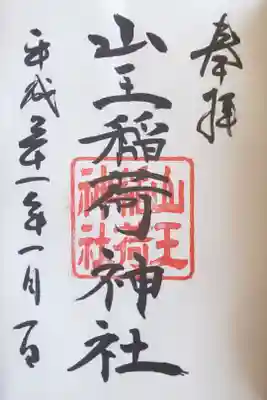 奉拝
山王稲荷神社
山王
稲荷
神社
平成三十一年一月一日